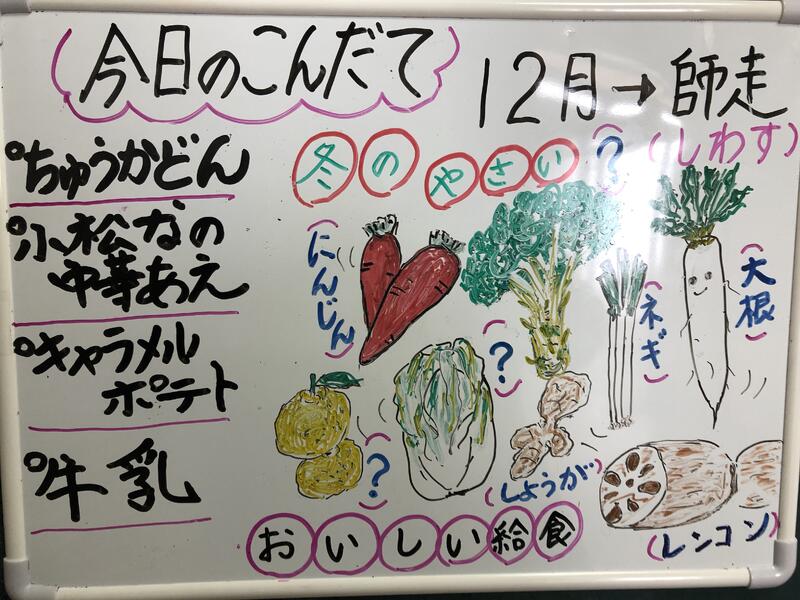 今日のこんだて
12月→師走
(しわす)
ちゅうかどん
小松なの
中華あえ
キャラメル
ポテト
牛乳
冬のやさい
(?)
(にんじん)
(ネギ)
(大根)
(?)
(?)
(しょうが)
(レンコン)
おいしい給食